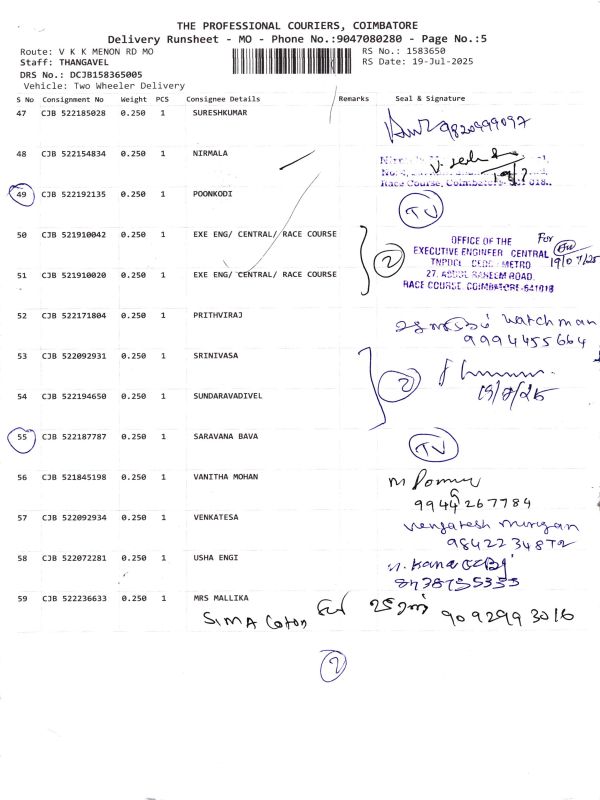 THE PROFESSIONAL COURIERS, COIMBATORE
Delivery Runsheet - MO - Phone No.:9047080280 - Page No.:5
Route: V K K MENON RD MO
RS No.: 1583650
Staff: THANGAVEL
RS Date: 19-Jul-2025
DRS No.: DCJB158365005
Vehicle: Two Wheeler Delivery
S No Consignment No Weight PCS Consignee Details Remarks Seal & Signature
47 CJB 522185028 0.250 1 SURESHKUMAR
9820499097
48 CJB 522154834 0.250 1 NIRMALA
Race Course, Coimbatore
49 CJB 522192135 0.250 1 POONKODI
TV
50 CJB 521910042 0.250 1 EXE ENG/ CENTRAL/ RACE COURSE
2
OFFICE OF THE
For
EXECUTIVE ENGINEER CENTRAL
19/07/25
METRO
51 CJB 521910020 0.250 1 EXE ENG/ CENTRAL/ RACE COURSE
27, ABDUL RAHEEM ROAD
RACE COURSE, COIMBATORE-641018
52 CJB 522171804 0.250 1 PRITHVIRAJ
watchman
9994455664
53 CJB 522092931 0.250 1 SRINIVASA
2
54 CJB 522194650 0.250 1 SUNDARAVADIVEL
55 CJB 522187787 0.250 1 SARAVANA BAVA
TV
56 CJB 521845198 0.250 1 VANITHA MOHAN
9944267784
57 CJB 522092934 0.250 1 VENKATESA
Vengatesh murugan
9842234872
58 CJB 522072281 0.250 1 USHA ENGI
59 CJB 522236633 0.250 1 MRS MALLIKA
SIMA
9092993016
2